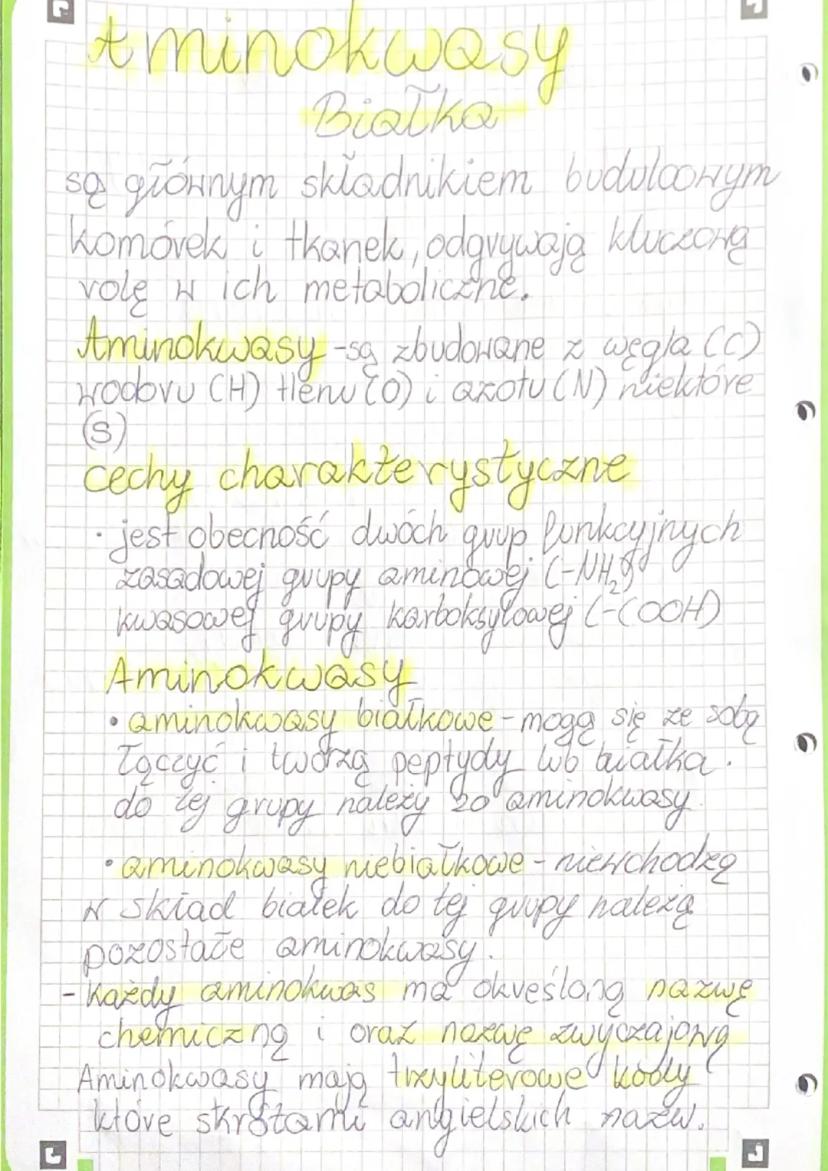 Aminokwasy
Białka
są głównym składnikiem budulcowym
komórek i tkanek, odgrywają kluczową
rolę w ich metaboliczne.
Aminokwasy - są zbudowane z węgla (C)
wodoru (H) tlenu (O) i azotu (N) niektóre
(S)
cechy charakterystyczne
· jest obecność dwóch grup funkcyjnych
zasadowej grupy aminowej (-NH₂)
kwasowej grupy karboksylowej (-COOH)
Aminokwasy
• aminokwasy białkowe - mogą się ze sobą
łączyć i tworzą peptydy lub białka.
do tej grupy należy 20 aminokwasy.
• aminokwasy niebiałkowe - niewchodzą
w skład białek do tej grupy należą
pozostałe aminokwasy.
- Każdy aminokwas ma określoną nazwę
chemiczną i oraz nazwę zwyczajową
Aminokwasy mają trzyliterowe kody
które skrótami angielskich nazw.